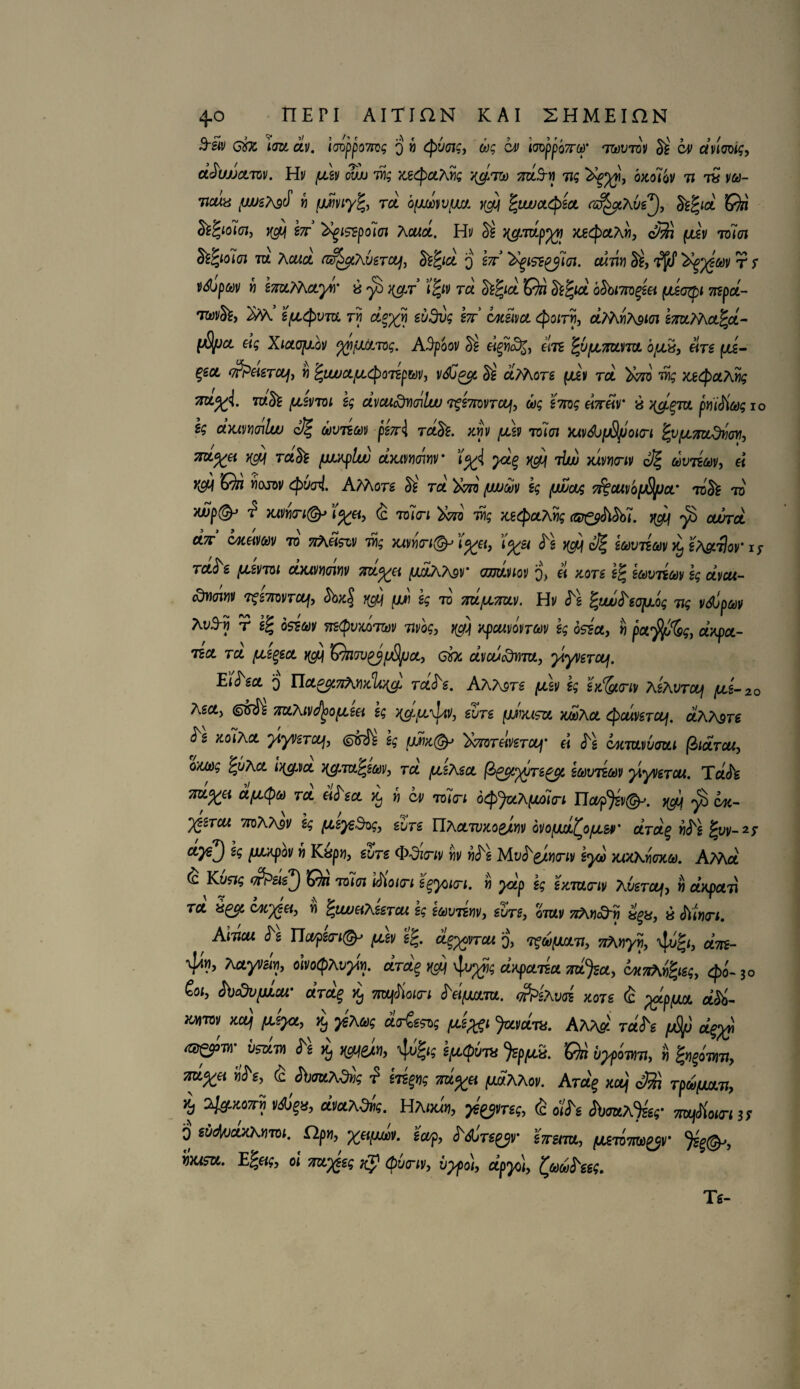 40 ΠΕΡΙ ΑΙΤΙΩΝ ΚΑΙ ΣΗΜΕΙΩΝ
θεῖν οὐκ ἴσα ἄν. ἰσόῤῥοπος δὲ ἡ φύσις, ὡς ἐν ἰσοῤῥόπῳ· τωυτὸν δὲ ἐν ἀνίσοις,
ἀδύνατον. Ην μὲν σὺν τῆς κεφαλῆς κάτω πάθη τις ἀρχὴ, ὁκοῖόν τι τῦ νω-
τιαίυ μυελῦ ἡ μῆνιγξ, τὰ ὁμώνυμα καὶ ξυναφέα παραλύε), δεξιὰ ἐπὶ
δεξιοῖσι, καὶ ἐπ᾽ ἀριςεροῖσι λαιά. Ην δὲ κατάρχῃ κεφαλὴ, ἐπὶ μὲν τοῖσι
δεξιοῖσι τὰ λαιὰ παραλύεται, δεξιὰ δὲ ἐπ᾽ ἀριςεροῖσι. αἰτίη δὲ, τῶν ἀρχέων τ 5
νεύρων ἡ ἐπαλλαγή· ὐ γὰρ κατ᾽ ἴξιν τὰ δεξιὰ ἐπὶ δεξιὰ ὁδοιπορέει μέσφι περά-
των δὲ, ἀλλ᾽ ἐμφῦντα τῇ ἀρχῇ εὐθὺς ἐπ᾽ ἐκεῖνα φοιτῇ, ἀλλήλοισι ἐπαλλαξά-
μενα εἰς Χιασμὸν χήματος. Αθρόον δὲ εἰπεῖν, εἴτε ξύμπαντα ὁμῦ, εἴτε μέ-
ρεα παρίεται, ἢ ξυναμφοτέρων, νεῦρα δὲ ἄλλοτε μὲν τὰ ἀπὸ τῆς κεφαλῆς
πάχει. τάδε μέντοι ἐς ἀναισθησίην τρέπονται, ὡς ἔπος εἰπεῖν· ὐ κάρτα ῥηϊδίως 10
ἐς ἀκινησίην ἀφ᾽ ὡυτέων ῥέπει τάδε. κἢν μὲν τοῖσι κινευμένοισι ξυμπαθήσῃ,
πάχει καὶ τάδε μικρὴν ἀκινησίην· ἴχει γὰρ καὶ τὴν κίνησιν ἀφ᾽ ὡυτέων, εἰ
καὶ ἐπὶ ἧσσον φύσει. Αλλοτε δὲ τὰ ἀπὸ μυῶν ἐς μύας περαινόμενα· τόδε τὸ
κῦρος τ κινήσιος ἴχει, καὶ τοῖσι ἀπὸ τῆς κεφαλῆς προσδιδοῖ. καὶ γὰρ αὐτὰ
ἀπ᾽ ἐκείνων τὸ πλεῖςον τῆς κινήσιος ἴχει, ἴχει δὲ καὶ ἀφ᾽ ἑωυτέων καὶ ἔλαττον· 15
τάδε μέντοι ἀκινησίην πάχει μᾶλλον· σπάνιον δὲ, εἴ κοτε ἐξ ἑωυτέων ἐς ἀναι-
σθησίην τρέπονται, δοκεῖ καὶ μὴ ἐς τὸ πάμπαν. Ην δὲ ξύνδεσμός τις νεύρων
λυθῇ τ ἐξ ὀςέων πεφυκότων τινὸς, καὶ κραινόντων ἐς ὀςέα, ἢ ῥαγέντος, ἀκρα-
τέα τὰ μέρεα καὶ ἐπισυρόμενα, οὐκ ἀναίσθητα, γίγνεται.
Εἴδεα δὲ Παραπληκτικὰ τάδε. Αλλοτε μὲν ἐς ἔκτασιν λέλυται μέ- 20
λεα, οὐδὲ παλινδρομέει ἐς κάμψιν, εὖτε μήκιςα κῶλα φαίνεται. ἄλλοτε
δὲ κοῖλα γίγνεται, οὐδὲ ἐς μῆκος ἀποτείνεται· εἰ δὲ ἐκτανύσαι βιᾶται,
ὅκως ξύλα ἱκανὰ κατάξεων, τὰ μέλεα βραχύτερα ἑωυτέων γίγνεται. Τάδε
πάχει ἄμφω τὰ εἴδεα καὶ ἡ ἐν τοῖσι ὀφθαλμοῖσι Παρθένος. καὶ γὰρ ἐκ-
χέεται πολλὸν ἐς μέγεθος, εὖτε Πλατυκορίην ὀνομάζομεν· ἀτὰρ ἠδὲ ξυν- 25
άγε) ἐς μικρὸν ἡ Κύρη, εὖτε Φθίσιν ἢν ἠδὲ Μυδρίησιν ἐγὼ κικλήσκω. Αλλὰ
καὶ Κύςις παρίε) ἐπὶ τοῖσι ἰδίοισι ἔργοισι. ἢ γὰρ ἐς ἔκτασιν λύεται, ἢ ἀκρατὴ
τὰ ὖρα ἐκχέει, ἢ ξυνειλέεται ἐς ἑωυτέην, εὖτε, ὅταν πλησθῇ ὔρυ, ὐ διίησι.
Αἰτίαι δὲ Παρέσιος μὲν ἕξ. ἄρχονται δὲ, τρώματι, πληγῇ, ψύξι, ἀπε-
ψίῃ, λαγνείῃ, οἰνοφλυγίῃ. ἀτὰρ καὶ ψυχῆς ἀκρατέα πάθεα, ἐκπλήξιες, φό- 30
βοι, δυσθυμίαι· ἀτὰρ καὶ παιδίοισι δείματα. παρέλυσέ κοτε καὶ χάρμα ἀδό-
κητον καὶ μέγα, καὶ γέλως ἄσβεςος μέχρι θανάτυ. Αλλὰ τάδε μὲν ἀρχὴ
πρώτη· ὑςάτη δὲ καὶ καιρίη, ψύξις ἐμφύτυ θερμῦ. ἐπὶ ὑγρότητι, ἢ ξηρότητι,
πάχει ἥδε, καὶ δυσαλθὴς τ ἑτέρης πάχει μᾶλλον. Ατὰρ καὶ ἐπὶ τρώματι,
καὶ διακοπῇ νεύρυ, ἀναλθής. Ηλικίη, γέροντες, καὶ οἵδε δυσαλθέες· παιδίοισι 35
δὲ εὐανάκλητοι. Ωρη, χειμών. ἔαρ, δεύτερον· ἔπειτα, μετόπωρον· θέρος,
ἥκιςα. Εξεις, οἱ παχέες κατὰ φύσιν, ὑγροὶ, ἀργοὶ, ζωώδεες.
Τε-